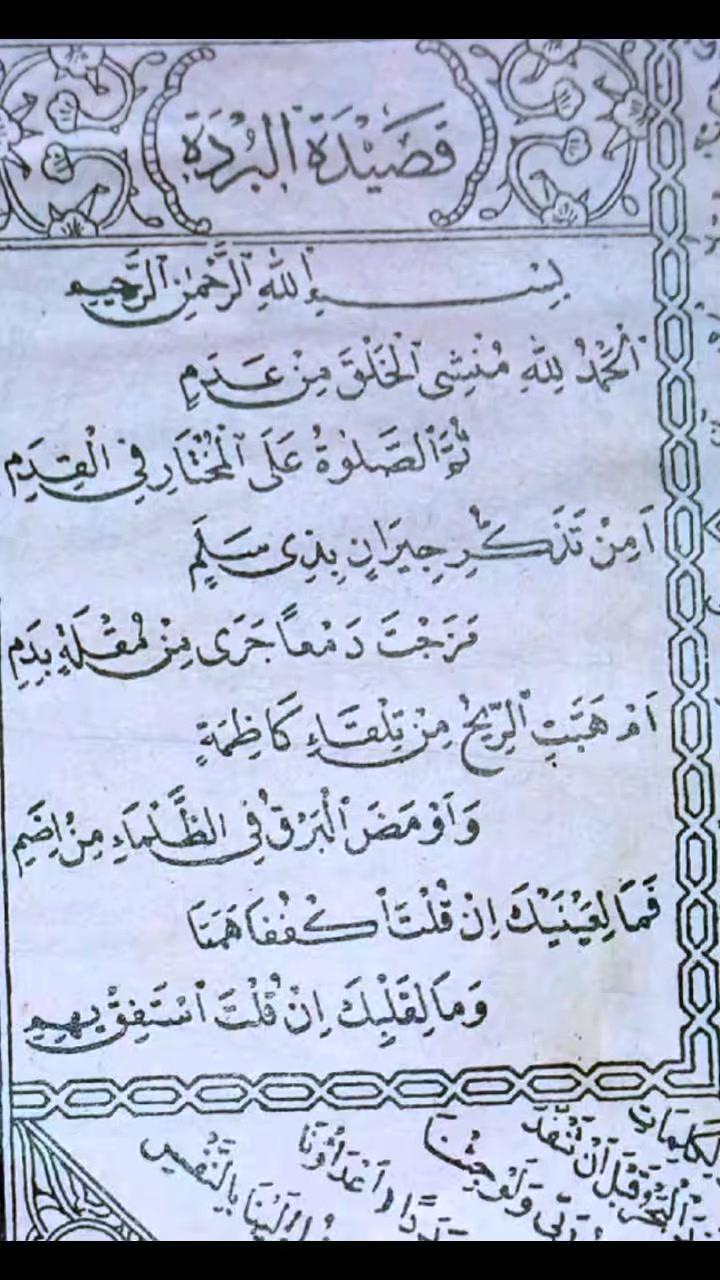 قَصِيْدَةُ الْبُرْدَةِ
بِسْمِ اللهِ الرَّحْمٰنِ الرَّحِيْمِ
اَلْحَمْدُ لِلّٰهِ مُنْشِی الْخَلْقَ مِنْ عَدَمٍ
ثُمَّ الصَّلٰوةُ عَلَى الْمُخْتَارِ فِي الْقِدَمِ
اَمِنْ تَذَكُّرِ جِيْرَانٍ بِذِى سَلَمٍ
مَزَجْتَ دَمْعًا جَرٰى مِنْ مُقْلَةٍ بِدَمٍ
اَمْ هَبَّتِ الرِّيْحُ مِنْ تِلْقَاءِ كَاظِمَةٍ
وَاَوْمَضَ الْبَرْقُ فِي الظَّلْمَاءِ مِنْ اِضَمِ
فَمَا لِعَيْنَيْكَ اِنْ قُلْتَ اكْفُفَا هَمَتَا
وَمَا لِقَلْبِكَ اِنْ قُلْتَ اسْتَفِقْ يَهِمِ
لِكَلِمَاتِ
الْبَحْرُ قَبْلَ اَنْ تَنْفَدَ
رَبِّى وَلَوْ جِئْنَا
اَعْدَاؤُنَا
اِلَيْنَا بِالنَّفْسِ